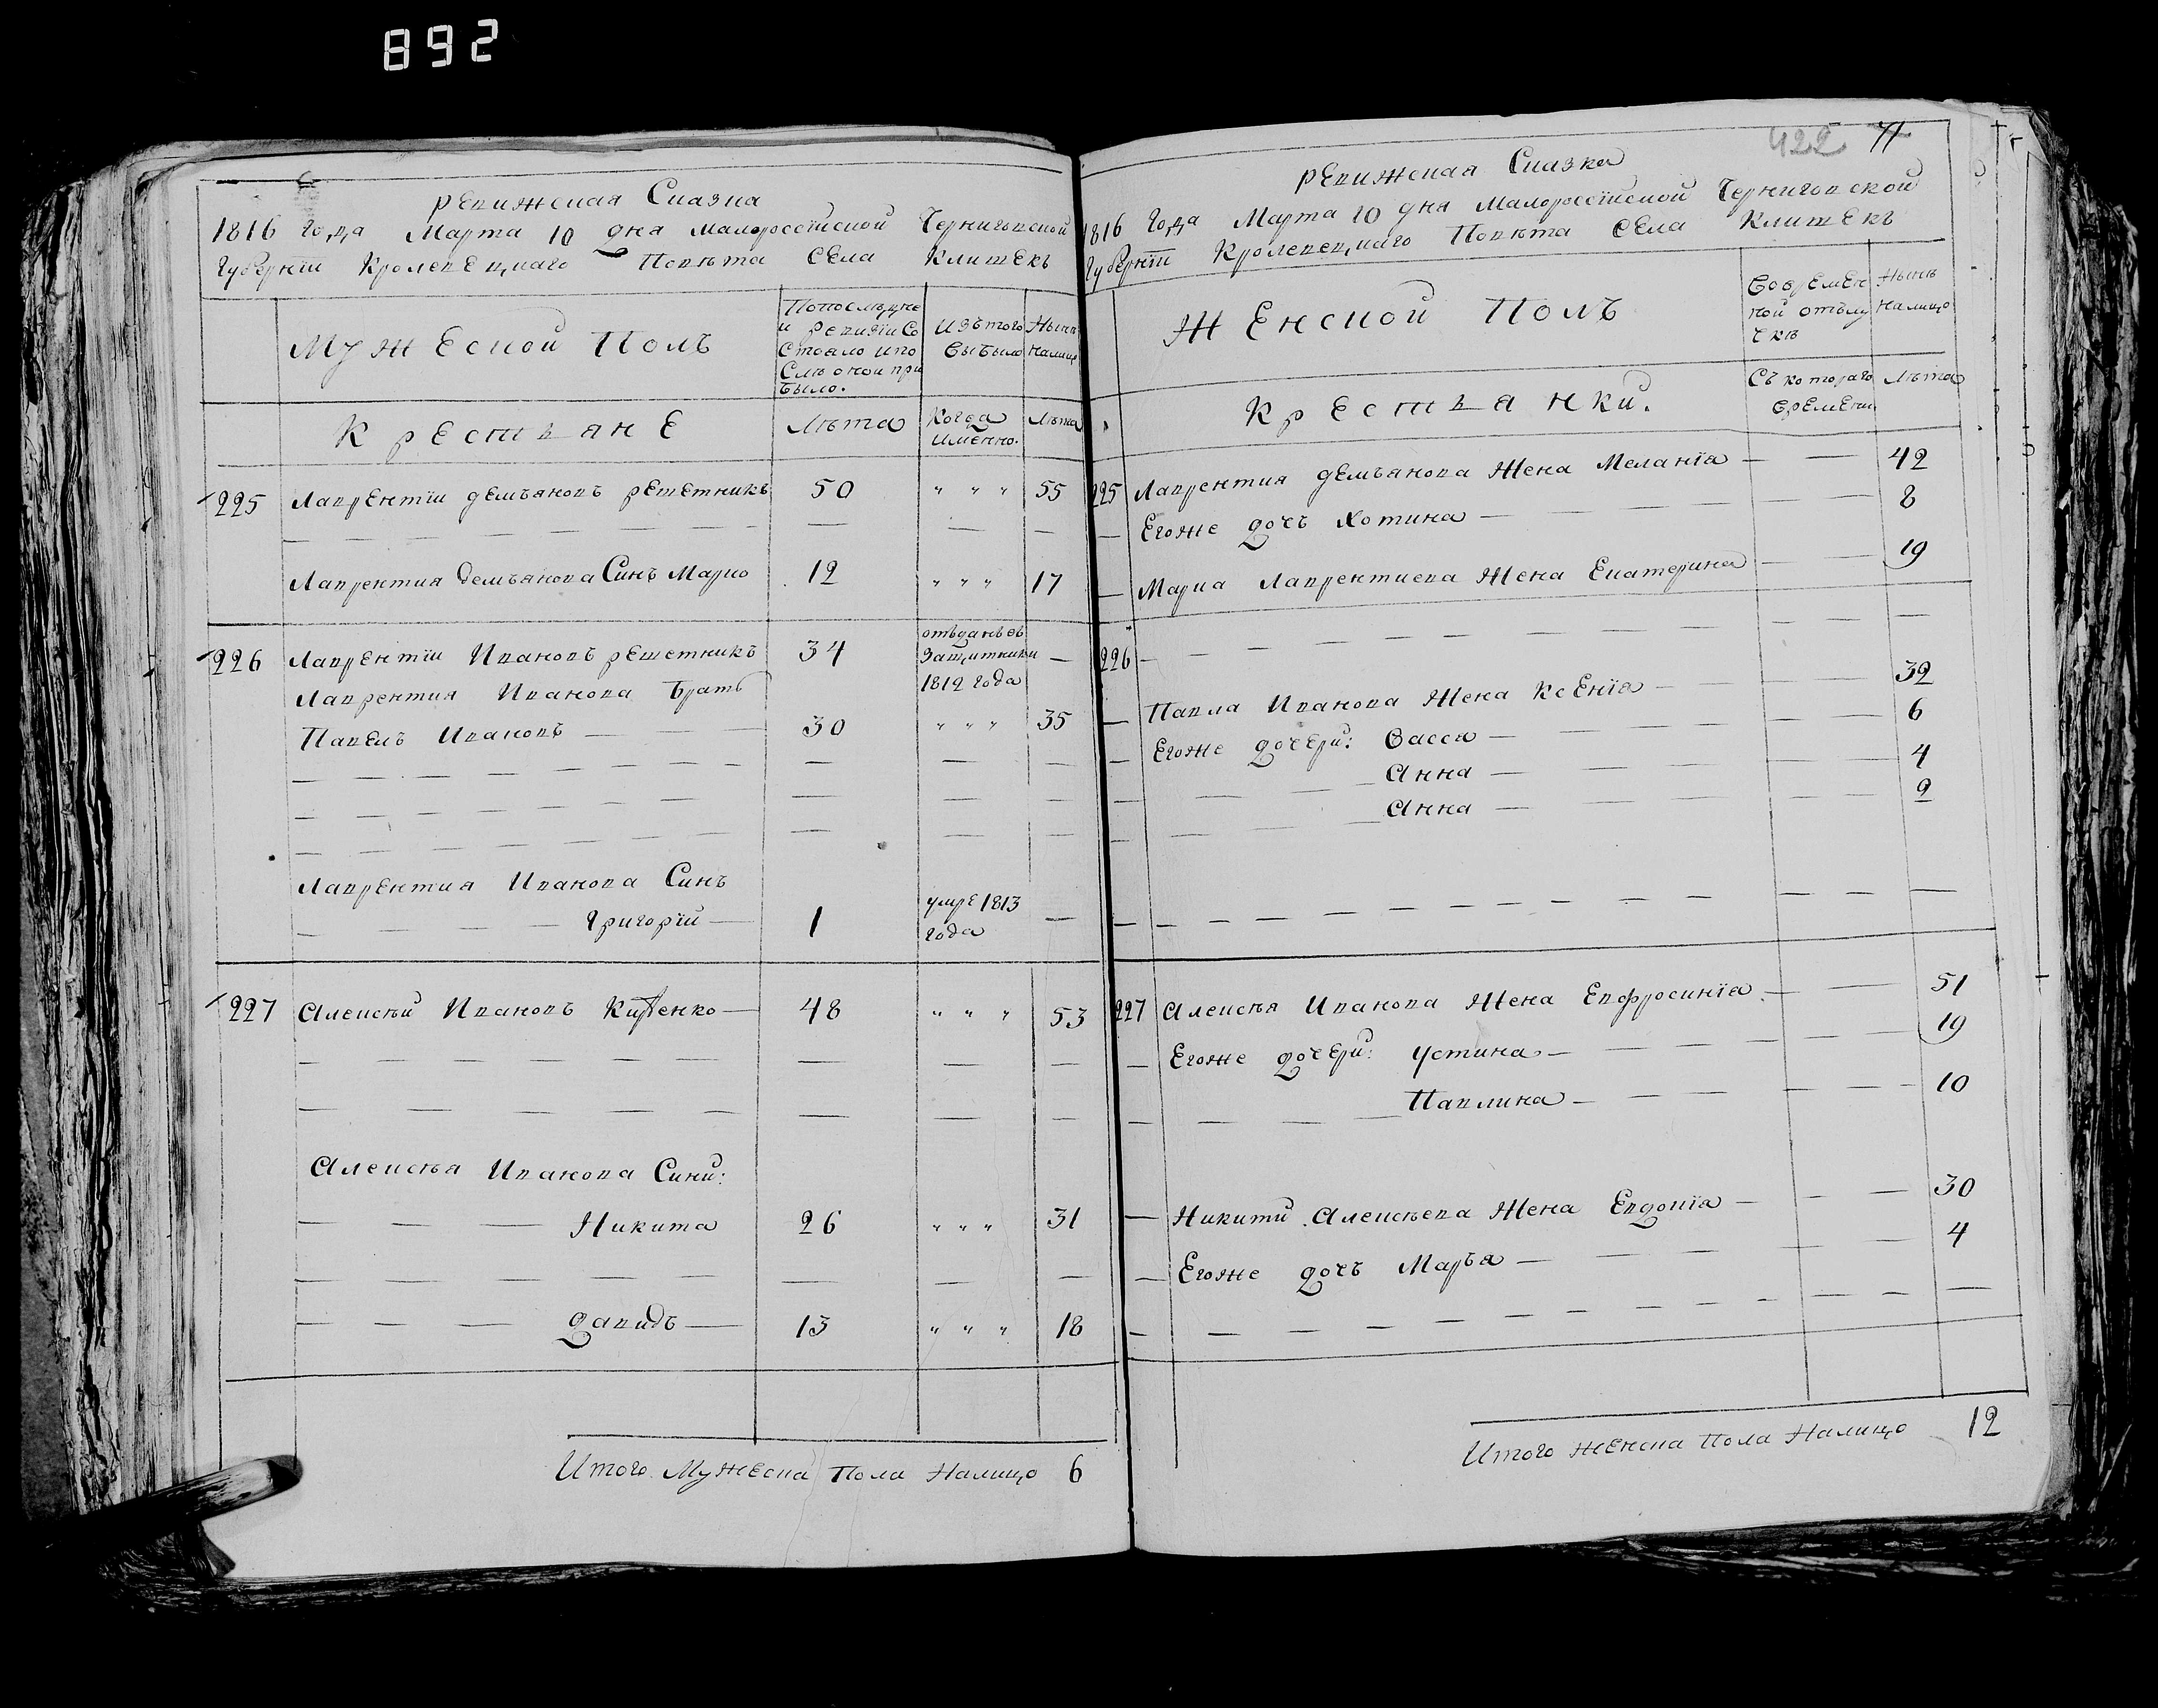 892
Ревижская Сказка
1816 года Марта 10 дня Малороссійской Черниговской
Губерніи Кролевецкаго Повѣта Села Клишекъ
Мужеской Полъ
Попослѣдне
и ревизіи со
стояло и по
слѣ оной при
было.
Изъ того
выбыло
Нынѣ
налицо
Крестьяне
Лѣта
Когда
имѣнно.
Лѣта
225 Лаврентіи Демьяновъ Решетникъ 50 " " " 55
Лаврентия Демьянова Синъ Марко 12 " " " 17
226 Лаврентіи Ивановъ Решетникъ 34 отъданъ въ
защитники
1812 года
Лаврентия Иванова Братъ
Павелъ Ивановъ 30 " " " 35
Лаврентия Иванова Синъ
Григорій 1 умре 1813
года
227 Алексѣй Ивановъ Китенко 48 " " " 53
Алексѣя Иванова Сини:
Никита 26 " " " 31
Давидъ 13 " " " 18
Итого Мужеска Пола Налицо 6
422 71
Ревижская Сказка
1816 Года Марта 10 дня Малоросейской Черниговской
Губерніи Кролевецкаго Повѣта Села Клишекъ
Женской Полъ
Во времен
ной отълу
чкѣ
Нынѣ
налицо
Крестьянки.
Съ котораго
времени
Лѣта
225 Лаврентия Демьянова Жена Меланія 42
Егоже дочъ Хотина 8
Марка Лаврентиева Жена Екатерина 19
226
Павла Иванова Жена Ксенія 32
Егоже дочери: Васса 6
Анна 4
Анна 2
227 Алексѣя Иванова Жена Евфросинія 51
Егоже дочери: Устина 19
Павлина 10
Никити Алексѣева Жена Евдокія 30
Егоже дочъ Марья 4
Итого женска пола Налицо 12